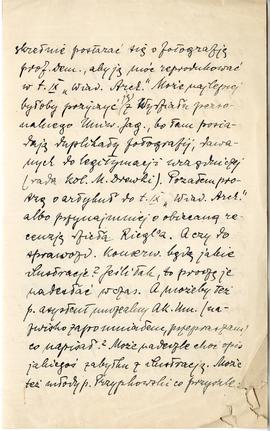 skrzętnie postarać się o fotografię
prof. Dem., aby ją móc reprodukować
w t. IX „Wiad. Arch." Może najlepiej
byłoby pożyczyć z Wydziału perso-
nalnego Uniw. Jag., bo tam posia-
dają duplikaty fotografij, dawa-
nych do legitymacji urzędniczej
(rada kol. M. Drewki). Pozatem pro-
szę o artykuł do t. IX „Wiad. Arch."
albo przynajmniej o obiecaną re-
cenzję dzieła Riegl'a. A czy do
sprawozd. Konserw. będą jakie
ilustracje? Jeśli tak, to proszę je
nadesłać wczas. A możeby też
p. asystent muzealny AK. Um. (na-
zwisko zapomniałem, przepraszam)
co napisał? Może nadeszle choć opis
jakiegoś zabytku z ilustracją. Może
też młody p. Przypkowski co przyszle: